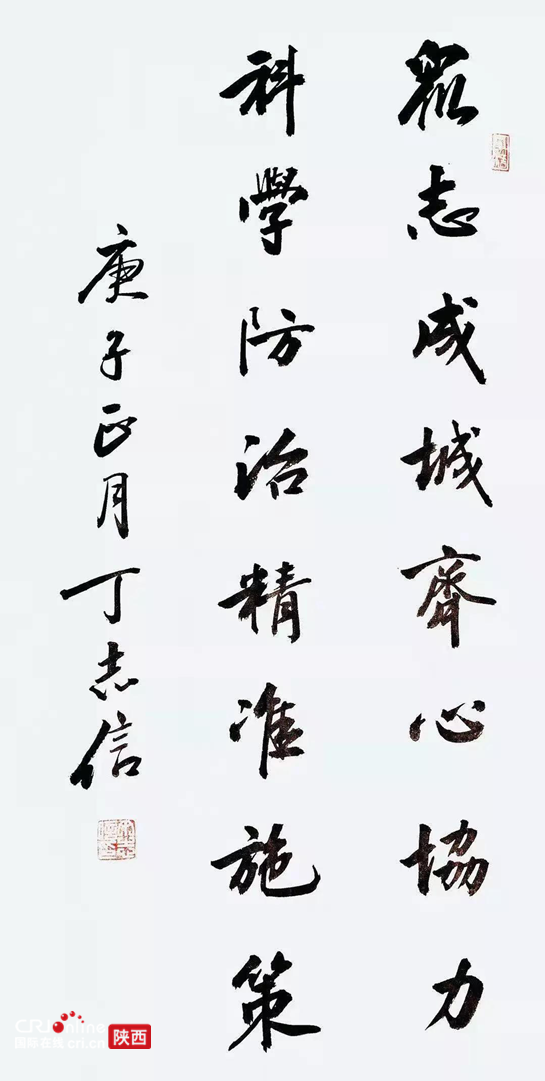 眾志成城齊心協力
科學防治精准施策
庚子正月丁志信
CRI Online
国际在线 cri.cn 陕西